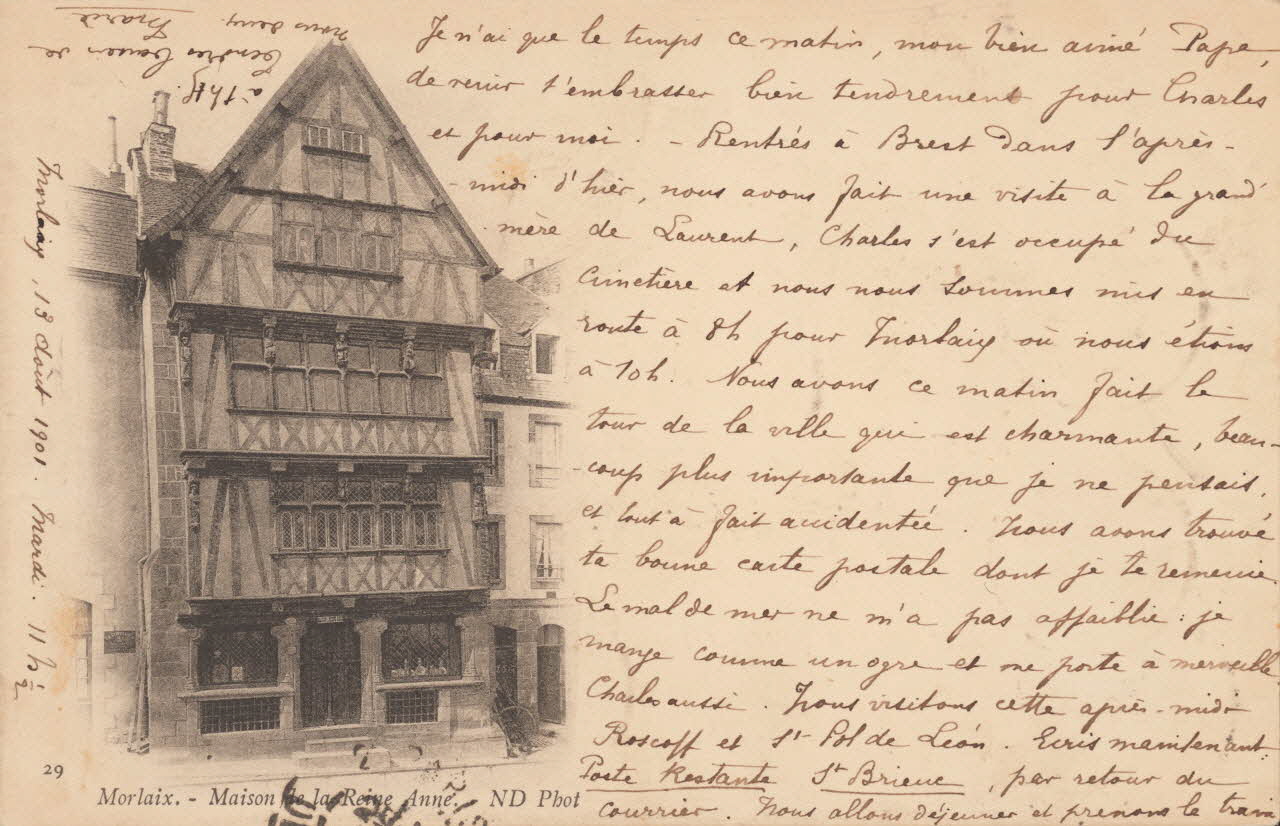 Morlaix, 13 Août 1901. Mardi. 11h ½
Je n'ai que le temps ce matin, mon bien aimé Papa,
de venir t'embrasser bien tendrement pour Charles
et pour moi. - Rentrés à Brest dans l'après-
-midi d'hier, nous avons fait une visite à la grand'
mère de Laurent, Charles s'est occupé du
cimetière et nous nous sommes mis en
route à 8h pour Morlaix où nous étions
à 10h. Nous avons ce matin fait le
tour de la ville qui est charmante, beau-
-coup plus importante que je ne pensais,
et tout à fait accidentée. Nous avons trouvé
ta bonne carte postale dont je te remercie.
Le mal de mer ne m'a pas affaiblie : je
mange comme un ogre et me porte à merveille
Charles aussi. Nous visitons cette après-midi
Roscoff et St Pol de Léon. Ecris maintenant
Poste Restante St Brieuc, par retour du
courrier. Nous allons déjeuner et prenons le train
à 1h
Tendres baisers de
nous deux.
Marie
29
Morlaix. - Maison de la Reine Anne. ND Phot